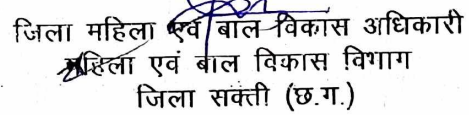 जिला महिला एवं बाल विकास अधिकारी
महिला एवं बाल विकास विभाग
जिला सक्ती (छ.ग.)